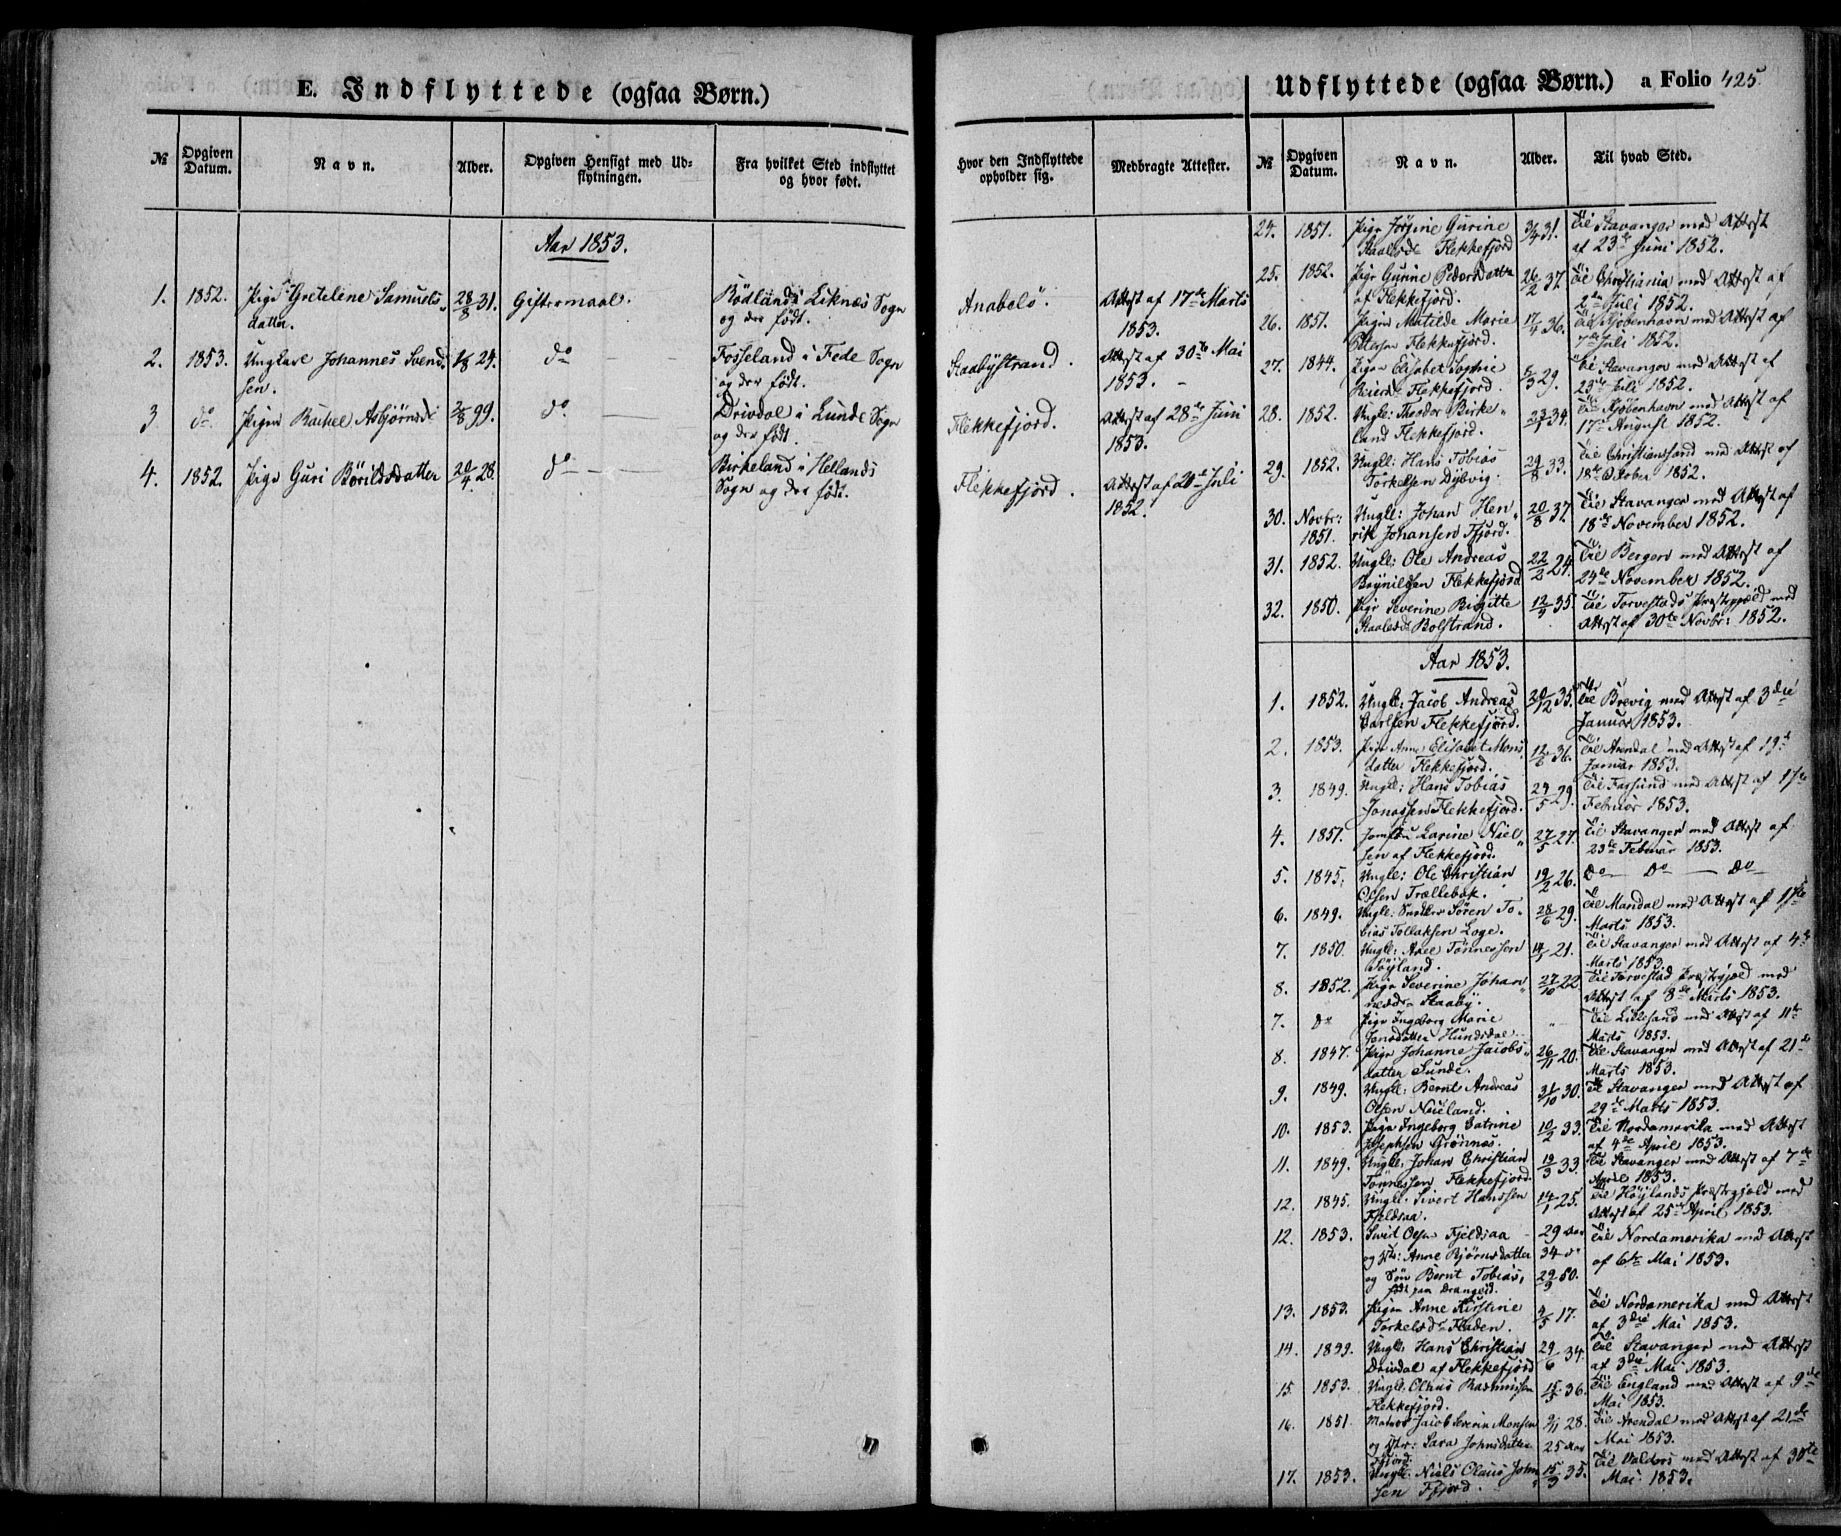 E. Indflyttede (ogsaa Børn.)
№
Opgiven Datum.
Navn.
Alder.
Opgiven Hensigt med Ud-
flytningen.
Fra hvilket Sted indflyttet
og hvor født.
Hvor den Indflyttede
opholder sig.
Medbragte Attester.
Aar 1853.
1. 1852. Pige Gretelene Samuels 28/8 31. Giftermaal. Rødland i Liknæs Sogn Anabelø. Attest af 17de Marts
datter. og der født. 1853.
2. 1853. Ungkarl Johannes Svend 24. do Fosseland i Fede Sogn Staabystrand. Attest af 30te Mai
sen. og der født. 1853.
3 do. Pigen Rachel Asbjørnsd 99. do. Drivdal i Lunde Sogn Flekkefjord. Attest af 28de Juni
og der født. 1853.
4. 1852. Pige Guri Børildsdatter 20/4 28. do Birkeland i Hellands Flekkefjord. Attest af 20de Juli
Sogn og der født. 1852.
Udflyttede (ogsaa Børn.) a Folio 425.
№
Opgiven Datum.
Navn.
Alder.
Til hvad Sted.
24. 1851. Pige Jørgine Gurine 31. Til Stavanger med Attest
Staalesd Flekkefjord af 23de Juni 1852.
25. 1852. Pige Gurine Pedersdatter 26/2 37. Til Christiania med Attest af
af Flekkefjord. 2den Juli 1852.
26. 1851. Pigen Matilde Marie 17/4 36. Til Kjøbenhavn med Attest af
Petersen Flekkefjord. 7de Juli 1852.
27. 1844. Pigen Elisabet Sophie 29. Til Stavanger med Attest af
Flekkefjord. 23de Juli 1852.
28. 1852. Ungk: Theodor Birke- 34. Til Kjøbenhavn med Attest af
land Flekkefjord. 17de August 1852.
29. 1852. Ungk: Hans Tobias 29/8 33. Til Christiansand med Attest af
Torkelsen Dybvig. 18de Oktober 1852.
30. Novbr: 1851. Ungk: Johan Hen- 20/8 37. Til Stavanger med Attest af
rik Johansen Fjord. 18de November 1852.
31. 1852. Ungk: Ole Andreas 22/2 24. Til Bergen med Attest af
Brynildsen Flekkefjord 24de November 1852.
32. 1850. Pige Severine Birgitte 12/4 35. Til Torvestads Præstegjæld med
Staalesd Bolstrand. Attest af 30te Novbr: 1852.
Aar 1853.
1. 1852. Ungk: Jacob Andreas 20/12 35. Til Brevig med Attest af 3die
Carlsen Flekkefjord. Januar 1853.
2. 1853. Pige Anne Elisabet Mons 12/6 36. Til Arendal med Attest af 19de
datter Flekkefjord. Januar 1853.
3. 1849. Ungk: Hans Tobias 24/5 29. Til Farsund med Attest af 17de
Jonassen Flekkefjord. Februar 1853.
4. 1851. Jomfru Larine Niel- 27/5 27. Til Stavanger med Attest af
sen af Flekkefjord. 23de Februar 1853.
5. 1845. Ungk: Ole Christian 19/2 26. Do Do Do
Olsen Trællebak.
6. 1849. Ungk: Søren To- 28/6 29. Til Mandal med Attest af 17de
bias Tollaksen Loge. Marts 1853.
7. 1850. Ungk: Axel Tønnessen 21. Til Stavanger med Attest af 4de
Søyland. Marts 1853.
8. 1852. Pige Severine Johan- 22 Til Torvestad Præstegjæld med
nesd Staaby. Attest af 8de Marts 1853.
7. Do Pige Ingeborg Marie Til Lillesand med Attest af 11te
Jonsdatter Hundsdal Marts 1853.
8. 1847. Pige Johanne Jacobs 26/11 20. Til Stavanger med Attest af 21de
datter Sunde. Marts 1853.
9. 1849. Ungk: Bernt Andreas 31/10 30. Til Stavanger med Attest af
Olsen Nuland. 29de Marts 1853.
10. 1853. Pige Ingeborg Catrine 10/2 33. Til Nordamerika med Attest
Josephsen Grønnes. af 4de April 1853.
11. 1849. Ungk: Johan Christian 19/3 33. Til Stavanger med Attest af 7de
Tønnessen Flekkefjord April 1853.
12. 1845. Ungk. Sivert Hanssen 14/1 25. Til Høylands Præstegjæld med
Fjeldsaa. Attest af 25de April 1853.
12. 1853. Sivert Olsen Fjeldsaa 29 Aar Til Nordamerika med Attest
og Hst: Anne Bjørnsdatter 34 do af 6te Mai 1853.
og Søn Bernt Tobias, 29/9 50.
født paa Drangeid.
13. 1853. Pigen Anne Kirstine 17. Til Nordamerika med Attest
Torkelsd Fladen. af 3die Mai 1853.
14. 1849. Ungk: Hans Christian 29/6 34. Til Stavanger med Attest
Drivdal af Flekkefjord af 3die Mai 1853.
15. 1853. Ungk: Olaus Rasmussen 36. Til England med Attest af 9de
Flekkefjord. Mai 1853.
16. 1851. Matros Jacob Severin Monsen 28. Til Arendal med Attest af 21de
og Hstr: Sara Johnsdatter 25 Aar Mai 1853.
Fjord.
17. 1853. Ungk: Niels Olaus John 15/3 35. Til Valders med Attest af 30te
sen Fjord. Mai 1853.